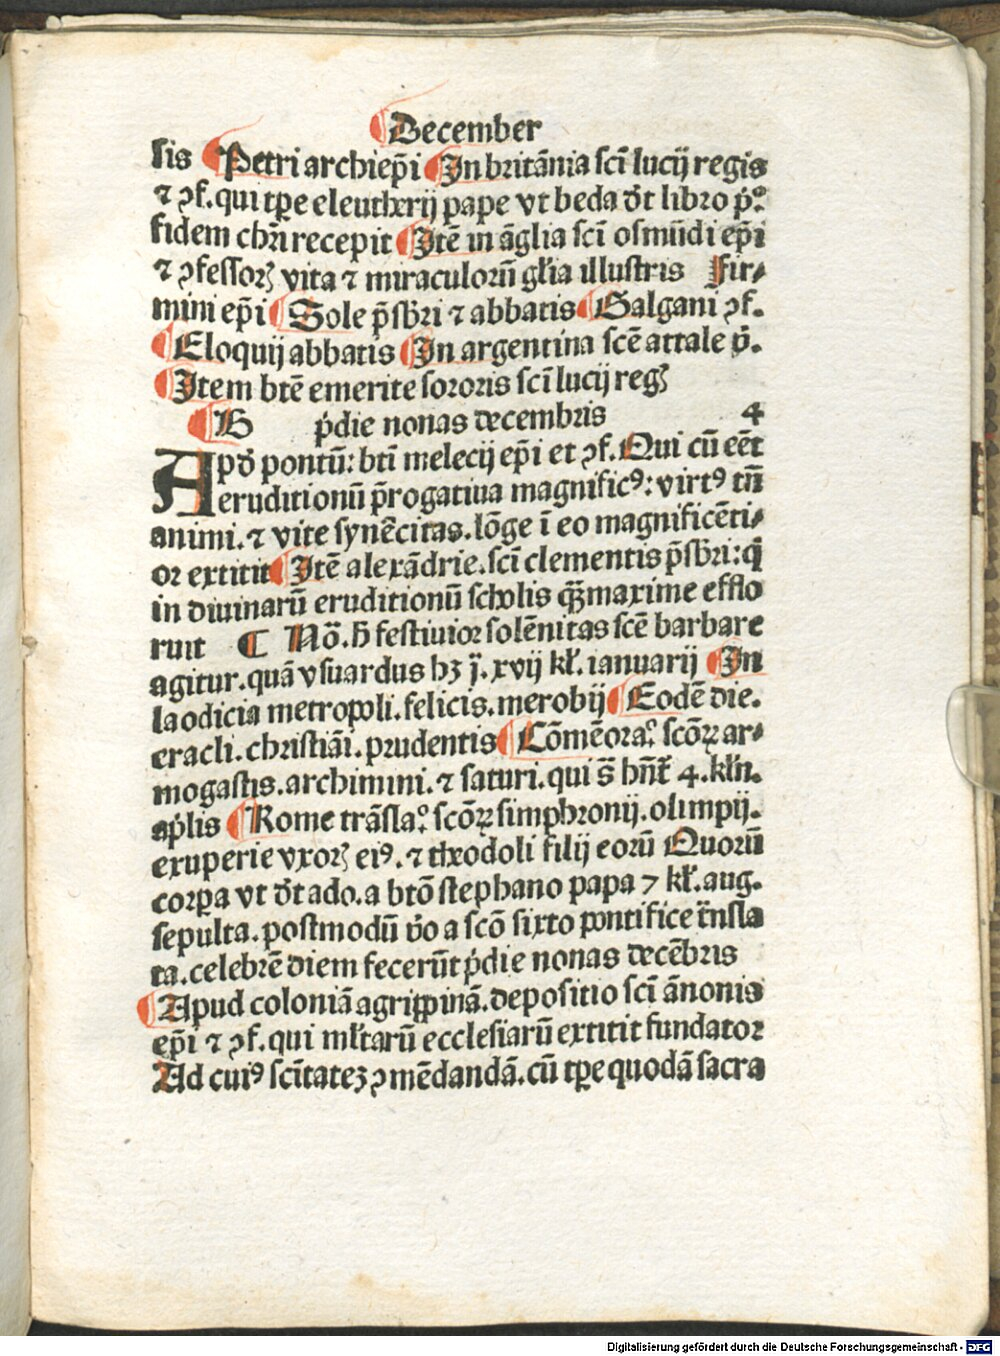 December
sis Petri archiep̃i In britãnia sc̃i lucij regis
⁊ ꝯf. qui tꝑe eleutherij pape vt beda d̃t libro p̃º
fidem chr̃i recepit Itẽ in ãglia sc̃i osmũdi ep̃i
⁊ ꝯfessoꝝ vita ⁊ miraculorũ gl̃ia illustris Fir⸗
mini ep̃i Sole p̃sbr̃i ⁊ abbatis Galgani ꝯf.
Eloquij abbatis In argentina sc̃e attale v̓.
Item btẽ emerite sororis sc̃i lucij reg̃
B p̓die nonas decembris 4
Apd̓ pontũ: bti̇̃ melecij ep̃i et ꝯf. Qui cũ eẽt
eruditionũ p̃rogatiua magnificꝰ: virtꝰ tñ
animi. ⁊ vite synẽcitas. lõge ĩ eo magnificẽti⸗
or extitit Itẽ alexãdrie. sc̃i clementis p̃sbr̃i: q̃
in diuinarũ eruditionũ scholis qꝫ maxime efflo
ruit ¶ Nõ. h̃ festiuior solẽnitas sc̃e barbare
agitur. quã vsuardus hꝫ j̃. xvij kł. ianuarij In
laodicia metropoli. felicis. merobij Eodẽ die.
eracli. christiãi. prudentis Cõmẽoraº. scõꝝ ar⸗
mogastis. archimini. ⁊ saturi. qui s̃ hñt̃ 4. kłn.
ap̓lis Rome trãslaº. scõꝝ simphronij. olimpij.
exuperie vxoꝝ eiꝰ. ⁊ theodoli filij eorũ Quorũ
corꝑa vt d̃t ado. a btõ stephano papa 7 kł. aug.
sepulta. postmodũ v̓o a scõ sixto pontifice t̃nsla
ta. celebrẽ diem fecerũt p̓die nonas decẽbris
Apud coloniã agrippinã. depositio sc̃i ãnonis
ep̃i ⁊ ꝯf. qui ml̃tarũ ecclesiarũ extitit fundator
Ad cuiꝰ sc̃itateꝫ ꝯmẽdandã. cũ tꝑe quodã sacra
Digitalisierung gefördert durch die Deutsche Forschungsgemeinschaft - DFG